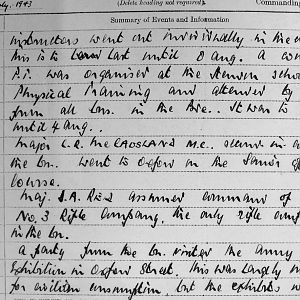 July. 1943
(Delete heading not required).
Commanding
Summary of Events and Information
instructors went out individually in the
this is to last until 8 Aug. A
P.T. was organised at the
Physical Training and attended by
from all bns. in the Bde.. It was to
until 4 Aug. .
Major L.R. M.C. second in
the bn. went to Oxford on the
course.
Maj. J.A. assumed command of
No. 3 Rifle Company, the only rifle
in the bn.
A party from the bn. visited the Army
Exhibition in Oxford Street. This was largely
for civilian consumption, but the exhibits